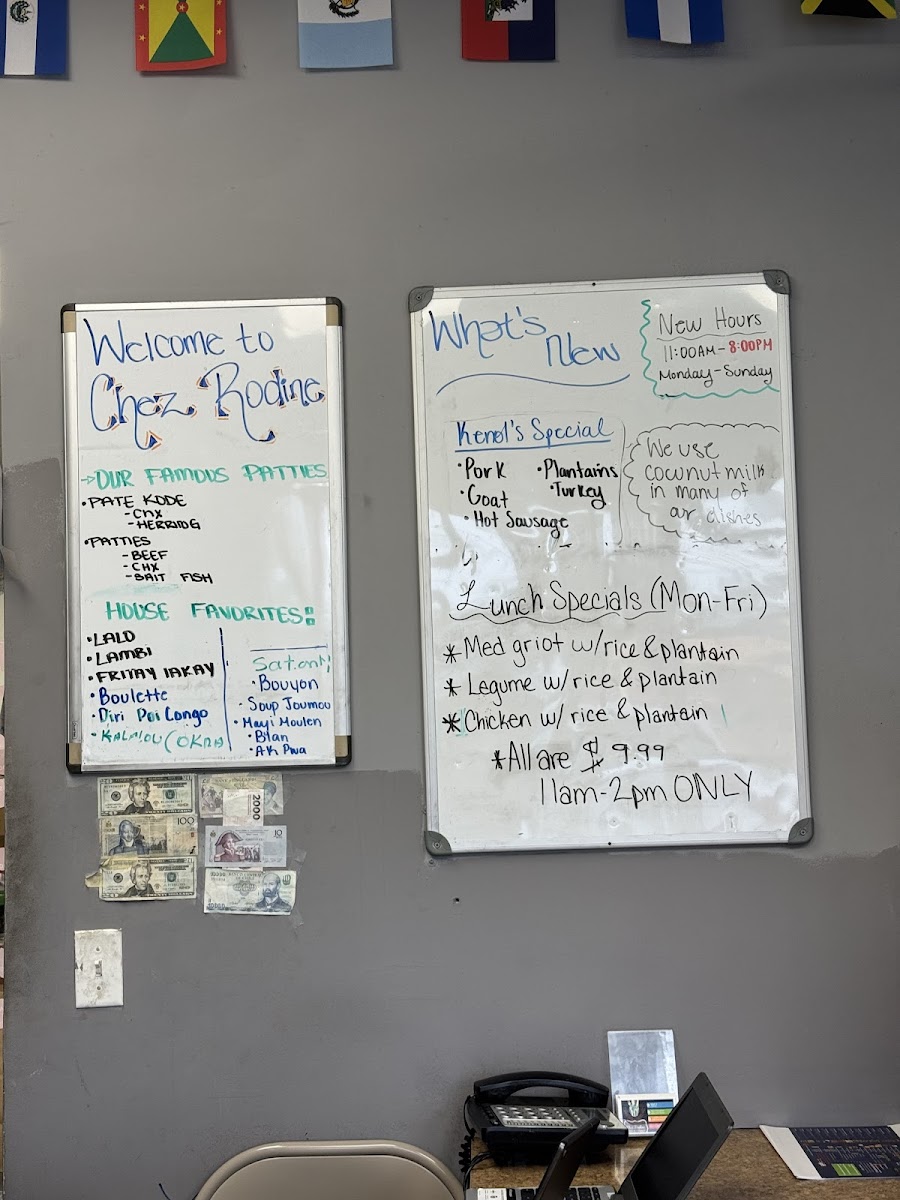 Welcome to
Chez Rodine
→OUR FAMOUS PATTIES
•PATE KODE
-CHX
-HERRING
•PATTIES
-BEEF
-CHX
-SALT FISH
HOUSE FAVORITES!!
•LALO
•LAMBI
•FRITAY LAKAY
•Boulette
•Diri Poi Congo
•KALALOU (OKRA
•Bouyon
•Soup Joumou
•Mayi Moulen
•Blan
•AK Pwa
What's
New
New Hours
11:00AM-8:00PM
Monday-Sunday
Kenol's Special
•Pork
•Plantains
•Goat
•Turkey
•Hot Sausage
We use
cocunut milk
in many of
our dishes
Lunch Specials (Mon-Fri)
*Med griot w/rice & plantain
*Legume w/ rice & plantain
*Chicken w/ rice & plantain
*All are $ 9.99
11am-2pm ONLY
100
2000
10